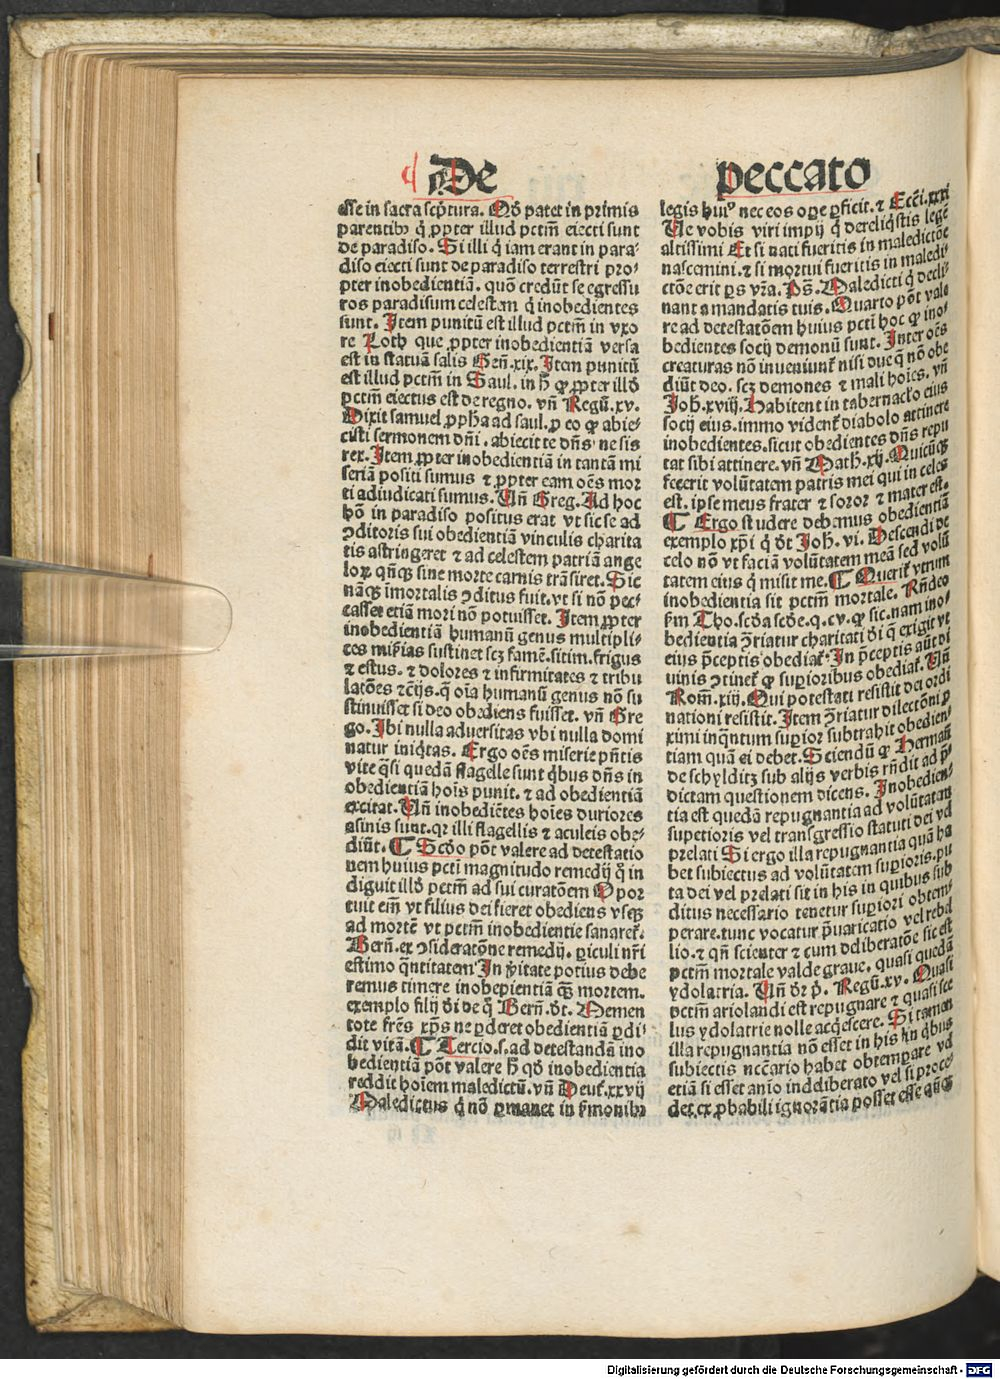 De peccato
esse in sacra scptura. Qď patet in primis
parentibꝰ q̇ ꝓpter illud pctm̄ eiecti sunt
de paradiso. Si illi q̇ iam erant in para-
diso eiecti sunt de paradiso terrestri pro-
pter inobedientiā. quō credūt se egressu
ros paradisum celestem q̇ inobedientes
sunt. Item punitū est illud pctm̄ in vxo
re Loth que ꝓpter inobedientiā versa
est in statuā salis Geñ.xix. Item punitū
est illud pctm̄ in Saul. in h̄ ꝙ ꝓpter illď
pctm̄ eiectus est de regno. vñ Regū.xv.
Dixit samuel ꝓpha ad saul. ꝓ eo ꝙ abie-
cisti sermonem dñi. abiecit te dñs ne sis
rex. Item ꝓpter inobedientiā in tantā mi
seriā positi sumus ⁊ ꝓpter eam oēs mor
ti adiudicati sumus. Uñ Greg. Ad hoc
hō in paradiso positus erat vt sic se ad
ꝯditoris sui obedientiā vinculis charita
tis astringeret ⁊ ad celestem patriā ange
loꝝ qñqꝫ sine morte carnis trāsiret. Sic
nāqꝫ īmortalis ꝯditus fuit. vt si nō pec-
casset etiā mori nō potuisset. Item ꝓpter
inobedientiā humanū genus multipli-
ces mīias sustinet scꝫ famē. sitim. frigus
⁊ estus. ⁊ dolores ⁊ infirmitates ⁊ tribu
latōes ⁊c̄ijs. q̇ oīa humanū genus nō su
stinuisset si deo obediens fuisset. vñ Gre
go. Ibi nulla aduersitas vbi nulla domi
natur iniq̇tas. Ergo oēs miserie pñtis
vite q̄si quedā flagelle sunt q̇bus dñs in
obedientiā hoīs punit. ⁊ ad obedientiā
excitat. Uñ inobediētes hoīes duriores
asinis sunt. qꝛ illi flagellis ⁊ aculeis obe-
diūt. ¶ Scďo pōt valere ad detestatio
nem huius pcti magnitudo remedij q̇ in
diguit illď pctm̄ ad sui curatōem Opor
tuit em̄ vt filius dei fieret obediens vsqꝫ
ad mortē vt pctm̄ inobedientie sanareť.
Berñ. ex ꝯsideratōne remedij. ꝑiculi nr̄i
estimo q̄ntitatem In v̇itate potius debe
remus timere inobepientiā qꝫ mortem.
exemplo filij ďi de q̇ Berñ. ďt. Memen
tote frēs xp̄s ne ꝑderet obedientiā ꝑdi-
dit vitā. ¶ Tercio.s. ad detestandā ino
bedientiā pōt valere h̄ qď inobedientia
reddit hoīem maledictū. vñ Deuť.xxvij
Maledictus q̇ nō ꝑmanet in ẜmonibꝰ
legis huiꝰ nec eos oꝑe ꝑficit. ⁊ Eccī.xxxi
Ue vobis viri impij q̇ dereliq̇stis legē
altissimi Et si nati fueritis in maledictōe
nascemini. ⁊ si mortui fueritis in maledi-
ctōe erit ꝑs vr̄a. Pš. Maledicti q̇ decli-
nant a mandatis tuis. Quarto pōt vale
re ad detestatōem huius pcti hoc ꝙ ino-
bedientes socij demonū sunt. Inter oēs
creaturas nō inueniunť nisi due q̄ nō obe
diūt deo. scꝫ demones ⁊ mali hoīes. vñ
Joħ.xviij. Habitent in tabernaclo eius
socij eius. immo videnť diabolo attinere
inobedientes. sicut obedientes dñs repu
tat sibi attinere. vñ Math.xij. Quicūqꝫ
fecerit volūtatem patris mei qui in celis
est. ipse meus frater ⁊ soror ⁊ mater est.
¶ Ergo studere debemus obedientiā
exemplo xp̄i q̇ ďt Joħ. vi. Descendi de
celo nō vt faciā volūtatem meā sed volū
tatem eius q̇ misit me. ¶ Queriť vtrum
inobedientia sit pctm̄ mortale. Rñdeo
ẜm Tho. scďa scďe.q.cv. ꝙ sic. nam ino-
bedientia ꝯtriatur charitati ďi q̄ exigit vt
eius p̄ceptis obediať. In p̄ceptis aūt di
uinis ꝯtineť ꝙ suꝑioribus obediať. Uñ
Rom̄.xiij. Qui potestati resistit dei ordi
nationi resistit. Item ꝯtriatur dilectōni ꝓ
ximi inq̄ntum suꝑior subtrahit obedien-
tiam quā ei debet. Sciendū ꝙ Hermañ
de schylditz sub alijs verbis rñdit ad p̄-
dictam questionem dicens. Inobedien-
tia est quedā repugnantia ad volūtatem
supetioris vel transgressio statuti dei vel
prelati Si ergo illa repugnantia quā ha
bet subiectus ad volūtatem suꝑioris. pu
ta dei vel prelati sit in his in quibus sub
ditus necessario tenetur suꝑiori obtem-
perare. tunc vocatur p̄uaricatio vel rebel
lio. ⁊ qñ scienter ⁊ cum deliberatōe sic est
pctm̄ mortale valde graue. quasi quedā
ydolatria. Uñ ďr p̄. Regū.xv. Quasi
pctm̄ ariolandi est repugnare ⁊ quasi sce
lus ydolatrie nolle acq̇escere. Si tamen
illa repugnantia nō esset in his in q̇bus
subiectis nccārio habet obtemꝑare vel
etiā si esset anio indeliberato vel si proce-
det. ex ꝓbabili ignorātia posset esse qñqꝫ
Digitalisierung gefördert durch die Deutsche Forschungsgemeinschaft - DFG